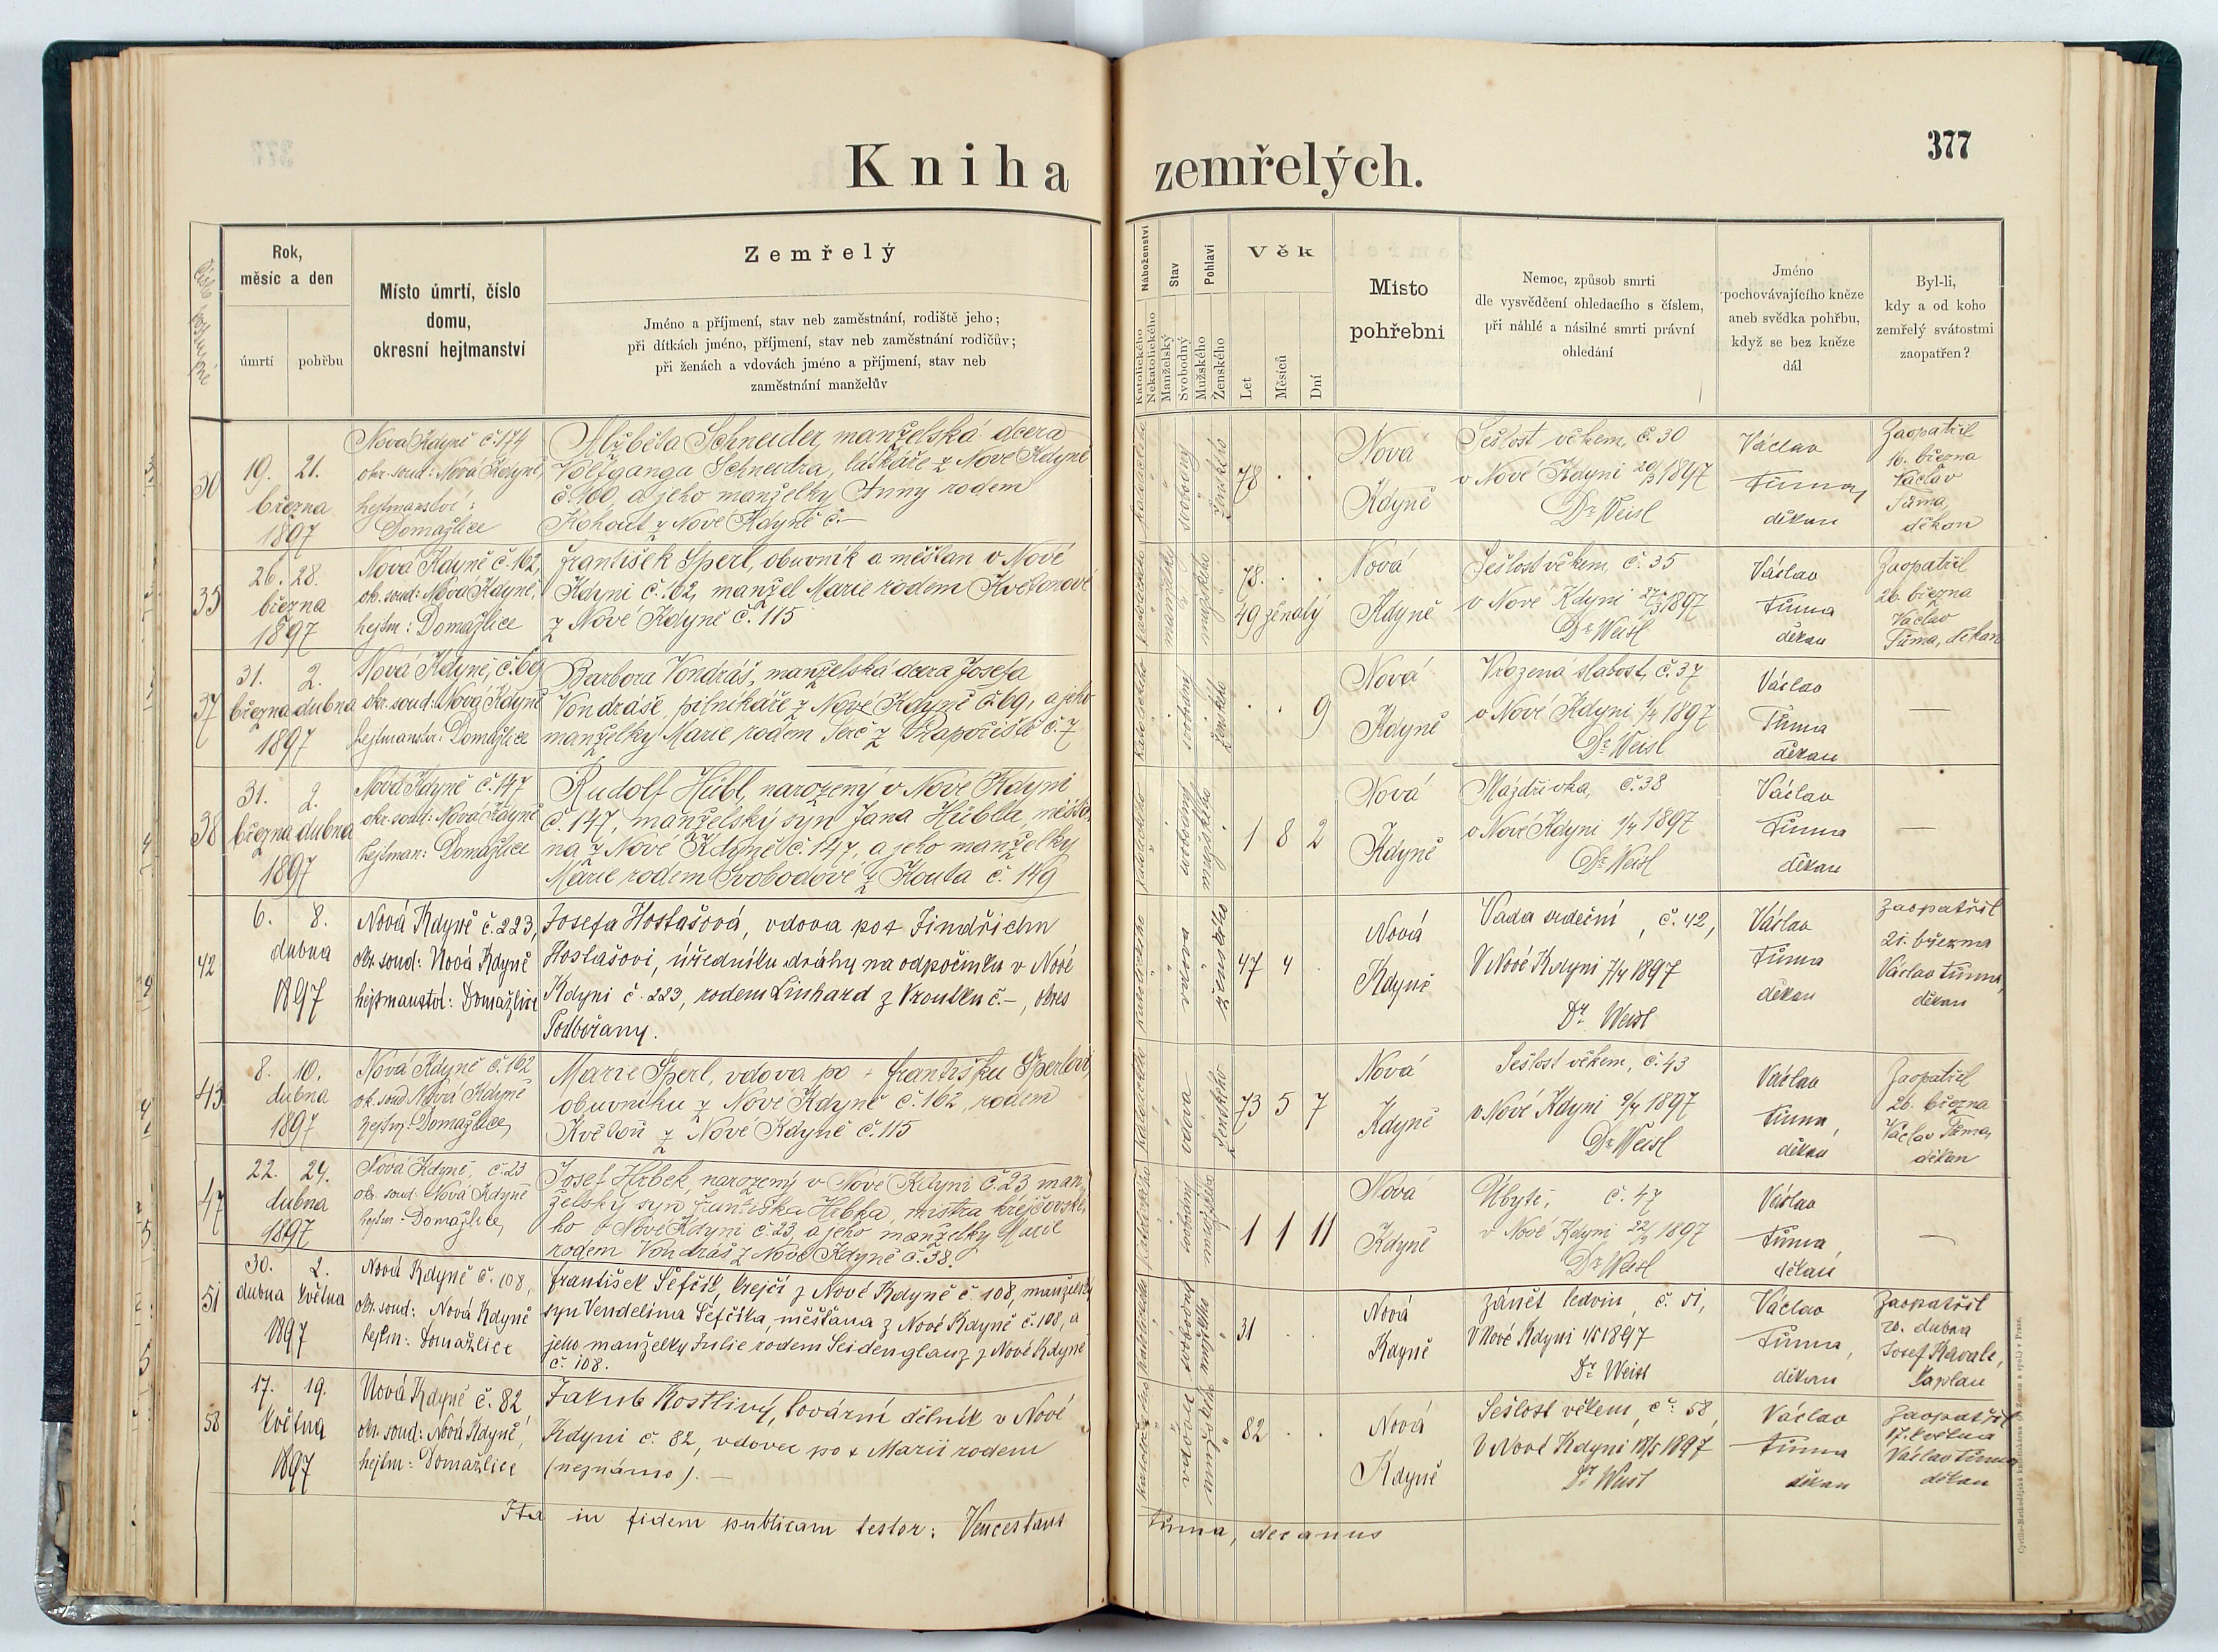 377
Kniha zemřelých.
Číslo pořadné
Rok,
měsíc a den
úmrtí
pohřbu
Místo úmrtí, číslo
domu,
okresní hejtmanství
Zemřelý
Jméno a příjmení, stav neb zaměstnání, rodiště jeho;
při dítkách jméno, příjmení, stav neb zaměstnání rodičův;
při ženách a vdovách jméno a příjmení, stav neb
zaměstnání manželův
Náboženství
Katolického
Nekatolického
Stav
Manželský
Svobodný
Pohlaví
Mužského
Ženského
Věk
Let
Měsíců
Dní
Místo
pohřební
Nemoc, způsob smrti
dle vysvědčení ohledacího s číslem,
při náhlé a násilné smrti právní
ohledání
Jméno
pochovávajícího kněze
aneb svědka pohřbu,
když se bez kněze
dál
Byl-li,
kdy a od koho
zemřelý svátostmi
zaopatřen?
30
19. 21.
března
1897
Nová Kdyně č. 174
okr. soud: Nová Kdyně,
hejtmanství:
Domažlice
Alžběta Schneider, manželská dcera
Wolfganga Schneidra, látkáře z Nové Kdyně
č. 100, a jeho manželky Anny rodem
Kohout z Nové Kdyně č. —
katolické
svobodný
ženského
78 . .
Nová
Kdyně
Sešlost věkem, č. 30
v Nové Kdyni 20/3 1897
Dr Weisl
Václav
Tůma,
děkan
Zaopatřil
16. března
Václav
Tůma,
děkan
35
26. 28.
března
1897
Nová Kdyně č. 162,
ok. soud: Nová Kdyně,
hejtm: Domažlice
František Šperl, obuvník a měšťan v Nové
Kdyni č. 162, manžel Marie rodem Květoňové
z Nové Kdyně č. 115
manželský
mužského
78. . .
49 ženatý
Nová
Kdyně
Sešlost věkem, č. 35
v Nové Kdyni 27/3 1897
Dr Weisl
Václav
Tůma
děkan
Zaopatřil
26. března
Václav
Tůma, děkan
37
31. 2.
března dubna
1897
Nová Kdyně, č. 69
okr. soud: Nová Kdyně
hejtmanstv: Domažlice
Barbora Vondráš, manželská dcera Josefa
Vondráše, pilníkáře z Nové Kdyně č. 69, a jeho
manželky Marie rodem Šerč z Prapořiště č. 7
katolického
svobodný
ženské
. . 9
Nová
Kdyně
Vrozená slabost, č. 37
v Nové Kdyni 1/4 1897
Dr Weisl
Václav
Tůma
děkan
—
38
31. 2.
března dubna
1897
Nová Kdyně č. 147
okr. soud: Nová Kdyně
hejtman: Domažlice
Rudolf Hübl, narozený v Nové Kdyni
č. 147, manželský syn Jana Hübla, měšťa-
na z Nové Kdyně č. 147, a jeho manželky
Marie rodem Svobodové z Kouta č. 149
svobodný
mužského
1 8 2
Nová
Kdyně
Mázdřivka, č. 38
v Nové Kdyni 1/4 1897
Dr Weisl
Václav
Tůma
děkan
—
42
6. 8.
dubna
1897
Nová Kdyně č. 223,
okr. soud: Nová Kdyně
hejtmanství: Domažlice
Josefa Hostašová, vdova po + Jindřichu
Hostašovi, úředníku dráhy na odpočinku v Nové
Kdyni č. 223, rodem Linhard z Vroutku č. —, okres
Podbořany.
katolického
vdova
ženského
47 4 .
Nová
Kdyně
Vada srdeční, č. 42,
V Nové Kdyni 7/4 1897
Dr. Weisl
Václav
Tůma
děkan
Zaopatřil
21. března
Václav Tůma,
děkan
43
8. 10.
dubna
1897
Nová Kdyně č. 162
ok. soud Nová Kdyně
hejtm: Domažlice,
Marie Šperl, vdova po + Františku Šperlovi,
obuvníku z Nové Kdyně č. 162, rodem
Květoň z Nové Kdyně č. 115
katolického
vdova
ženského
73 5 7
Nová
Kdyně
Sešlost věkem, č. 43
v Nové Kdyni 9/4 1897
Dr Weisl
Václav
Tůma,
děkan
Zaopatřil
26. března
Václav Tůma,
děkan
47
22. 24.
dubna
1897
Nová Kdyně, č. 23
okr. soud: Nová Kdyně
hejtm: Domažlice,
Josef Hrbek, narozený v Nové Kdyni č. 23, man-
želský syn Františka Hrbka, mistra krejčovské-
ho v Nové Kdyni č. 23, a jeho manželky Marie
rodem Vondráš z Nové Kdyně č. 38.
katolického
svobodný
mužského
1 1 11
Nová
Kdyně
Úbytě, č. 47
v Nové Kdyni 22/4 1897
Dr Weisl
Václav
Tůma,
děkan
—
51
30. 2.
dubna května
1897
Nová Kdyně č. 108,
okr. soud: Nová Kdyně
hejtm: Domažlice
František Šefčík, krejčí z Nové Kdyně č. 108, manželský
syn Vendelína Šefčíka, měšťana z Nové Kdyně č. 108, a
jeho manželky Julie rodem Seidenglanz z Nové Kdyně
č. 108.
katolického
svobodný
mužského
31 . .
Nová
Kdyně
Zánět ledvin, č. 51,
V Nové Kdyni 1/5 1897
Dr. Weisl
Václav
Tůma,
děkan
Zaopatřil
20. dubna
Josef Kavale,
kaplan
58
17. 19.
května
1897
Nová Kdyně č. 82
okr. soud: Nová Kdyně,
hejtm: Domažlice
Jakub Kostlivý, tovární dělník v Nové
Kdyni č. 82, vdovec po + Marii rodem
(neznámo). —
katolického
vdovec
mužského
82 . .
Nová
Kdyně
Sešlost věkem, č. 58,
V Nové Kdyni 18/5 1897
Dr Weisl
Václav
Tůma
děkan
Zaopatřil
17. května
Václav Tůma
děkan
Ita in fidem publicam testor: Venceslaus
Tůma, decanus